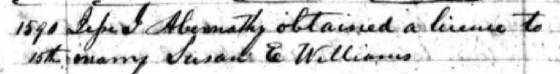 1590 Jesse J Abernathy obtained a licence to
15th marry Susan E Williams